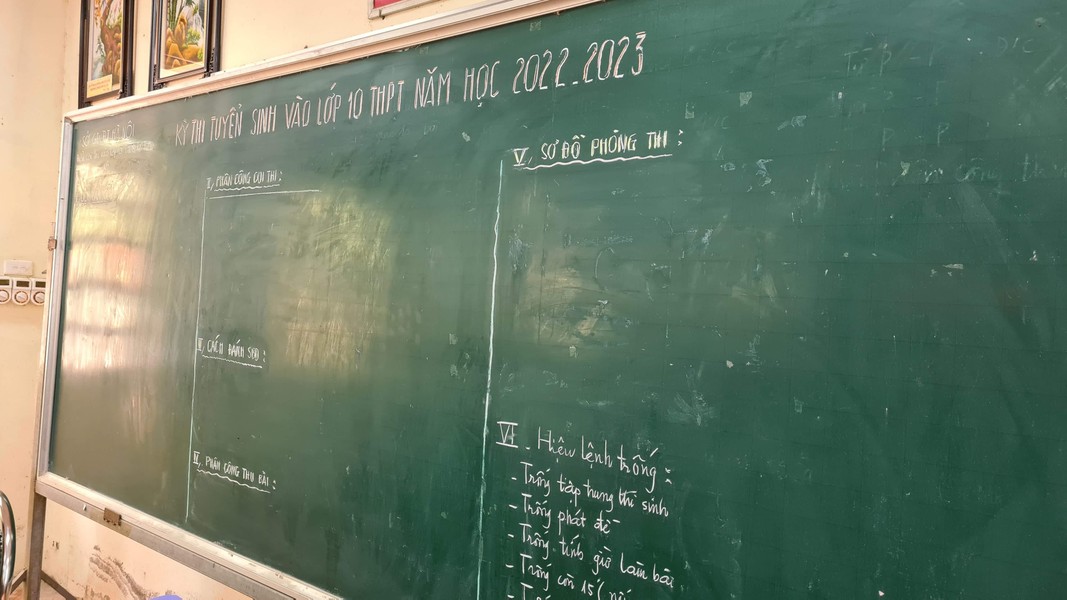 KỲ THI TUYỂN SINH VÀO LỚP 10 THPT NĂM HỌC 2022_2023
II, PHÂN CÔNG COI THI :
CÁCH ĐÁNH SBD :
IV, PHÂN CÔNG THU BÀI :
V, SƠ ĐỒ PHÒNG THI :
VI - Hiệu lệnh trống :
- Trống tập trung thí sinh
- Trống phát đề
- Trống tính giờ làm bài
- Trống còn 15'